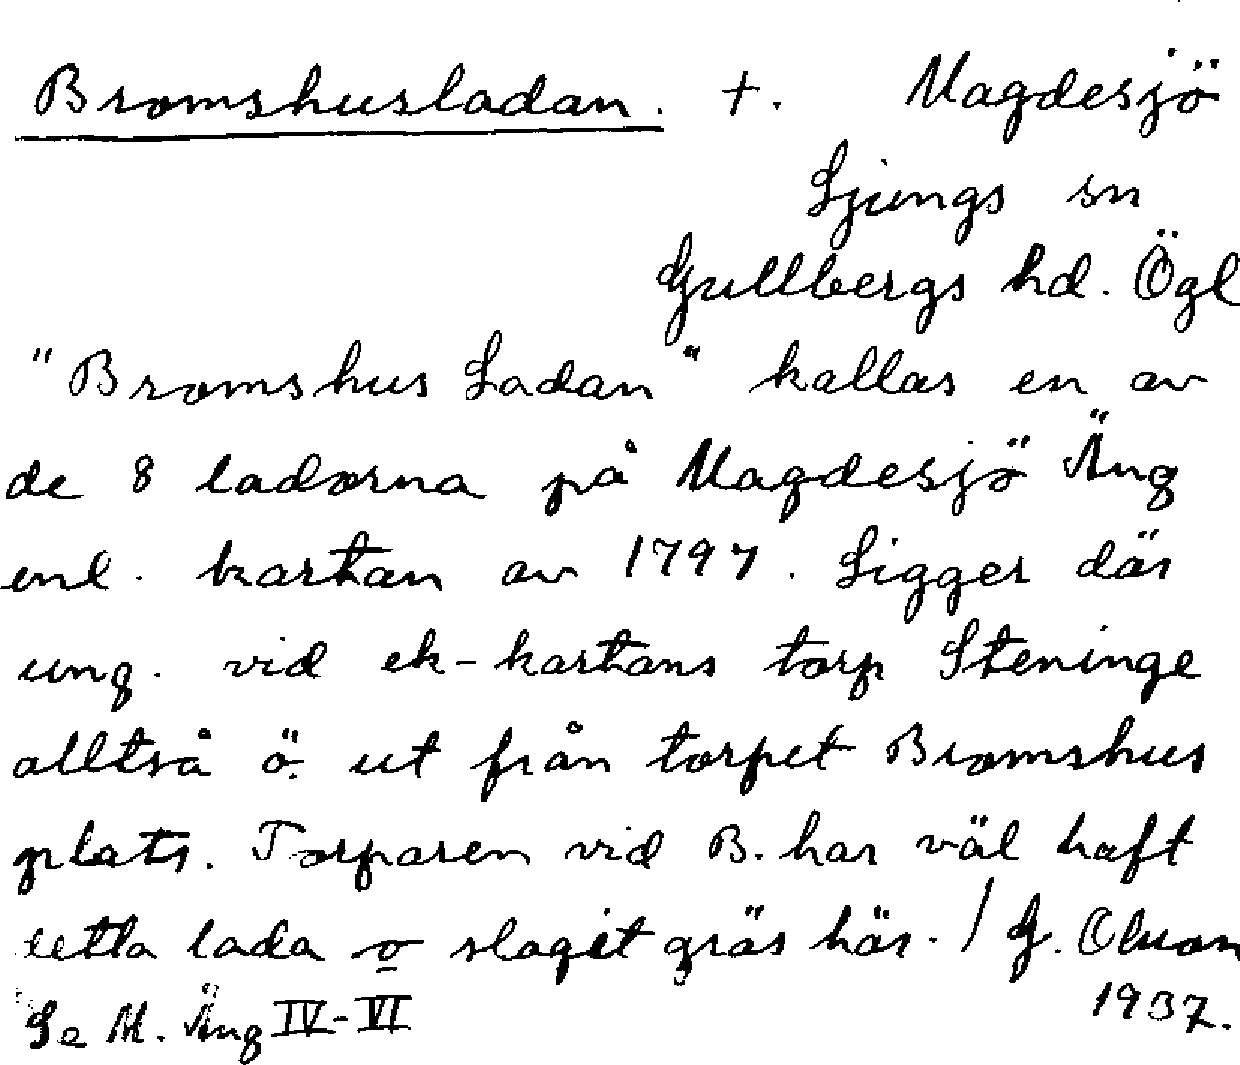 Bromshusladan. +. Magdesjö
Ljungs sn
Gullbergs hd. Ögl
"Bromshus Ladan" kallas en av
de 8 ladorna på Magdesjö Äng
enl. kartan av 1797. Ligger där
ung. vid ek-kartans torp Steninge
alltså ö. ut från torpet Bromshus
plats. Torparen vid B. har väl haft
lada o slagit gräs här. / G. Olson
1937.
Se M. Äng IV-VI